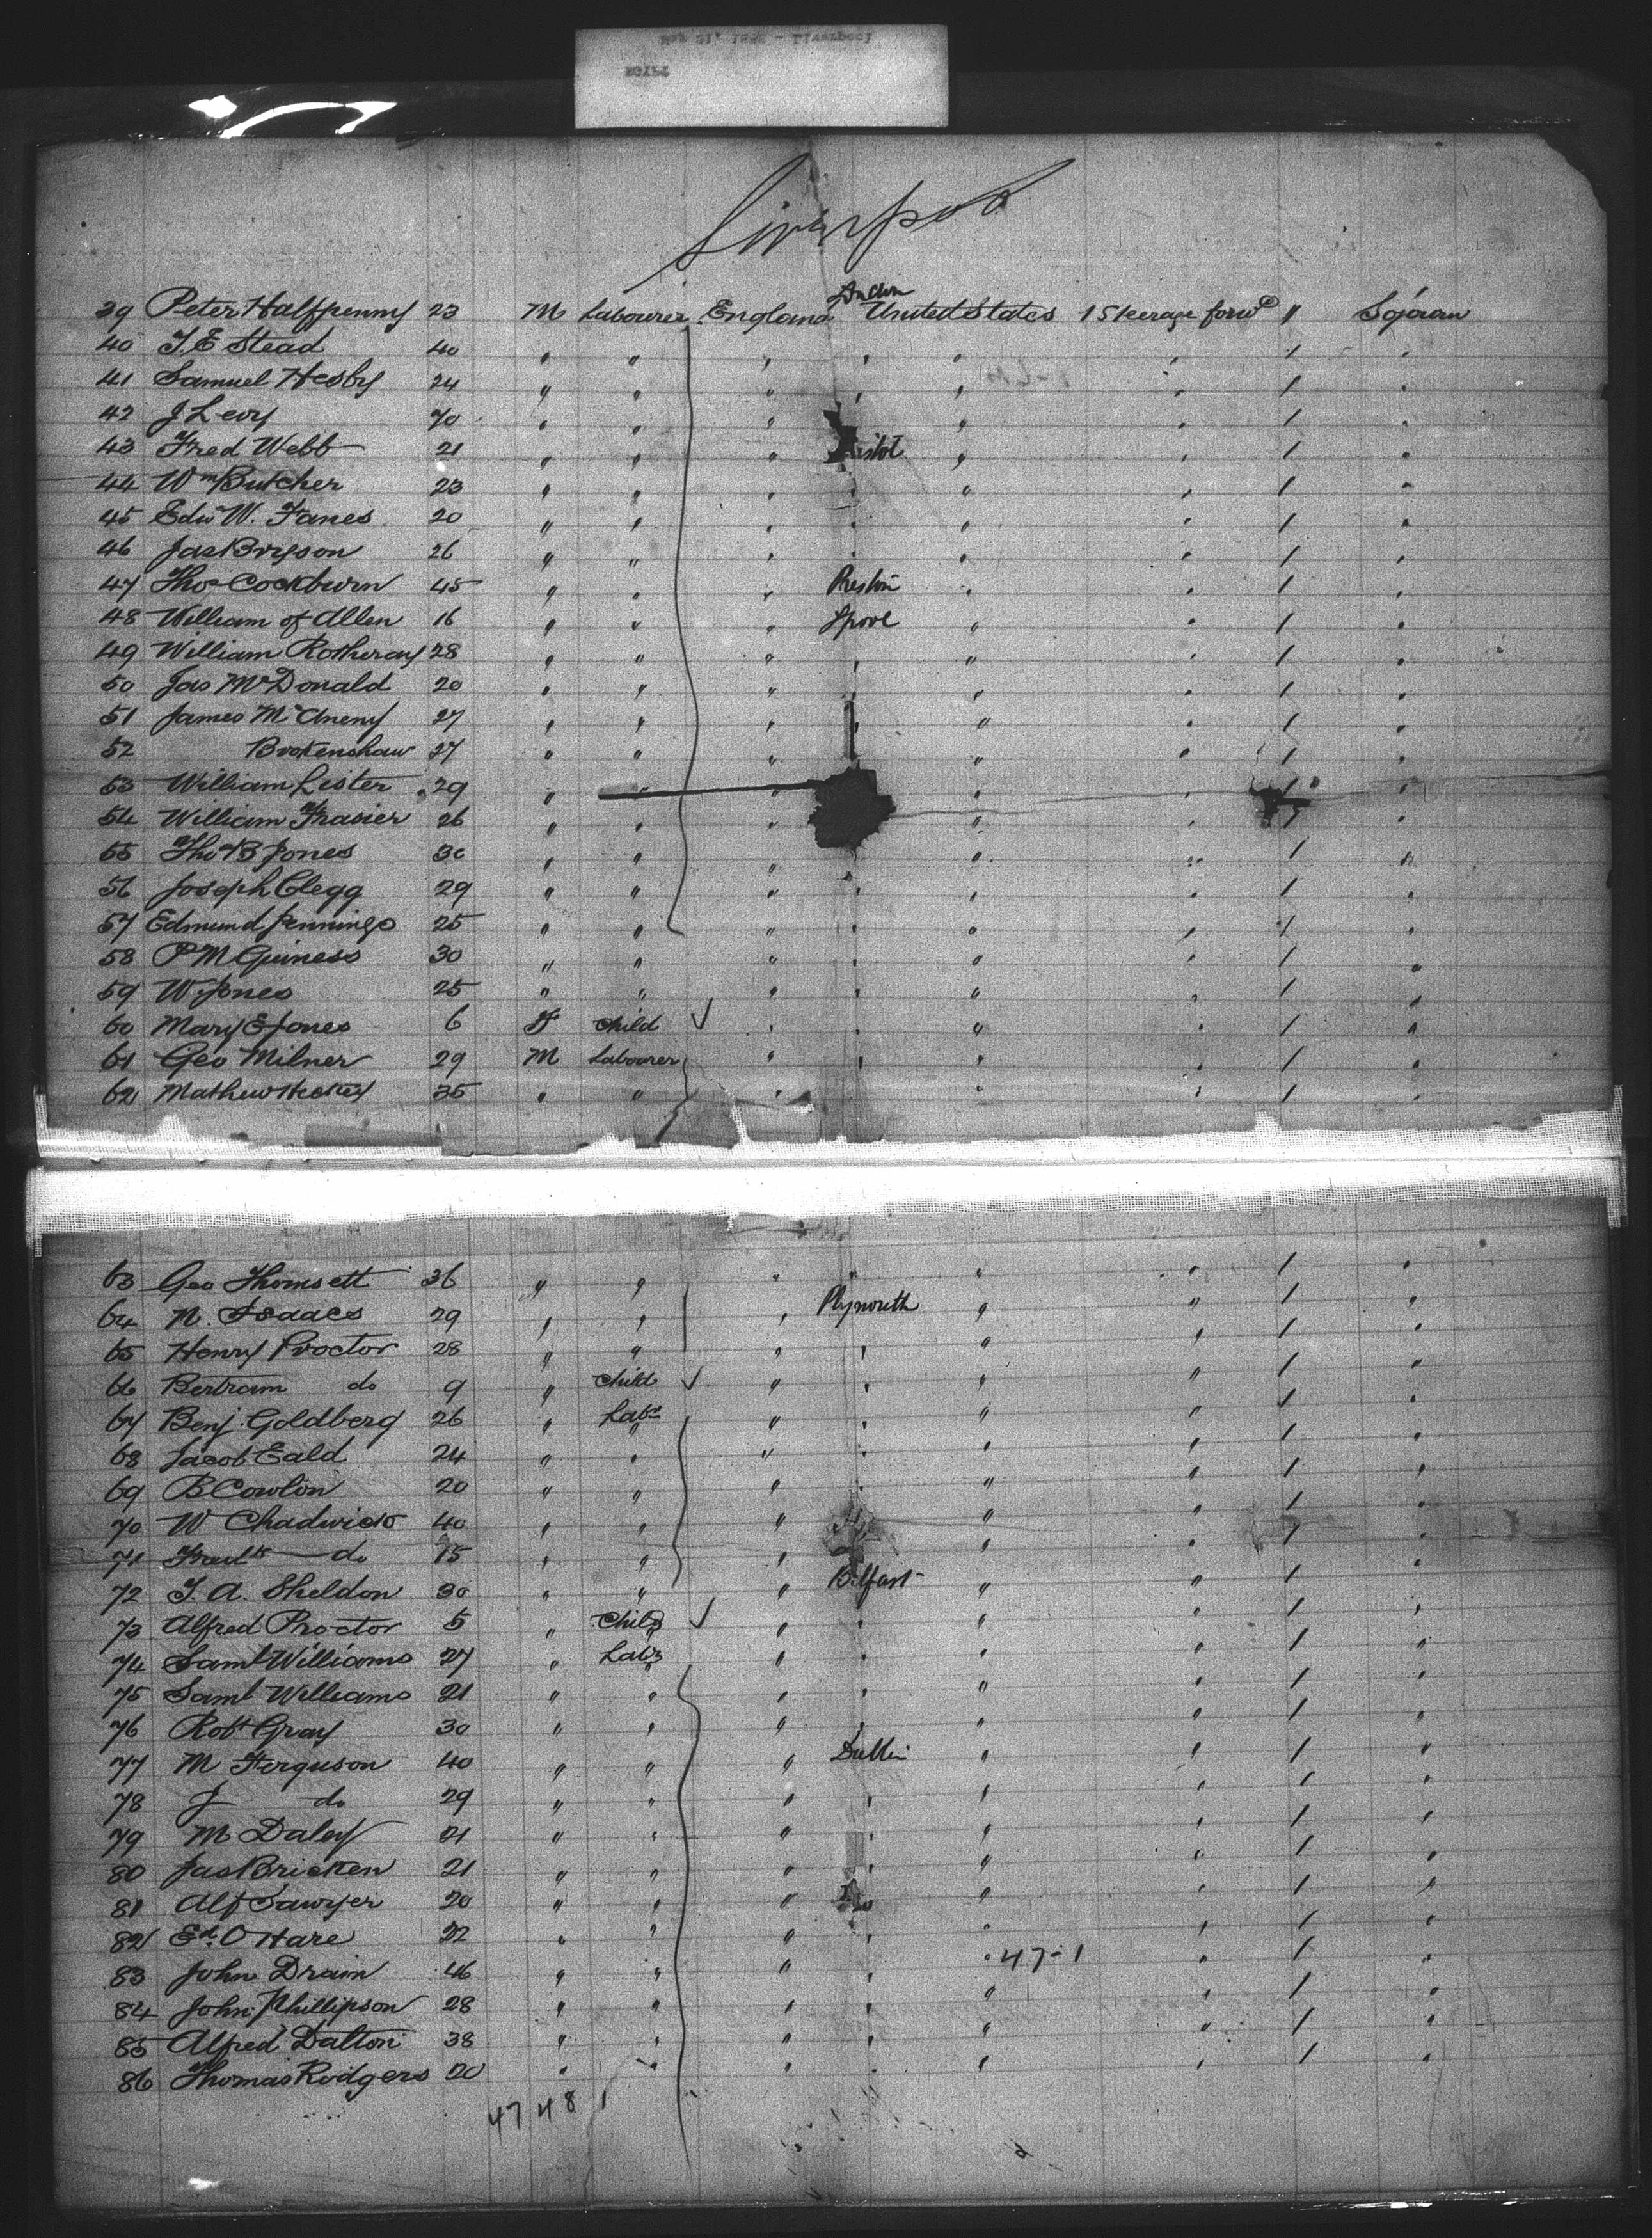 Liverpool
39 Peter Halfpenny 23 M Labourer England United States 1 Steerage forwd " Sojourn
40 T. E Stead 40 " " " " " " 1 "
41 Samuel Hesby 24 " " " " " " 1 "
42 J Levy 70 " " " " " 1 "
43 Fred Webb 21 " " " istol " " 1 "
44 Wm Butcher 23 " " " " " " 1 "
45 Edw W. Fanes 20 " " " " " " 1 "
46 Jas Bryson 26 " " " " " " 1 "
47 Thos Cockburn 45 " " " Preston " " 1 "
48 William of Allen 16 " " " Lpool " " 1 "
49 William Rotheray 28 " " " " " " 1 "
50 Jas McDonald 20 " " " " " " 1 "
51 James McAneny 27 " " " " " " 1 "
52 Brokenshaw 27 " " " " " 1 "
53 William Lister 29 " " " " " 1 "
54 William Frasier 26 " " " " 1 "
55 Thos B Jones 30 " " " " " 1 "
56 Joseph Clegg 29 " " " " " " 1 "
57 Edmund Jennings 25 " " " " " " 1 "
58 P McGuiness 30 " " " " " " 1 "
59 W Jones 25 " " " " " " 1 "
60 Mary E Jones 6 F Child " " " " 1 "
61 Geo Milner 29 M Labourer " " " " 1 "
62 Mathew Hickey 35 " " " " " 1 "
63 Geo Thomsett 36 " " " " " " 1 "
64 N. Isaacs 29 " " " Plymouth " " 1 "
65 Henry Proctor 28 " " " " " " 1 "
66 Bertram do 9 " Child " " " " 1 "
67 Benj. Goldberg 26 " Labr " " " " 1 "
68 Jacob Eald 24 " " " " " " 1 "
69 B Cowlon 20 " " " " " " 1 "
70 W Chadwick 40 " " " " " 1 "
71 Fredk do 15 " " " " " 1 "
72 T. A. Sheldon 30 " " " Belfast " " 1 "
73 Alfred Proctor 5 " Child " " " " 1 "
74 Saml Williams 27 " Labr " " " " 1 "
75 Saml Williams 21 " " " " " " 1 "
76 Robt Gray 30 " " " " " " 1 "
77 M Ferguson 40 " " " Dublin " " 1 "
78 J do 29 " " " " " " 1 "
79 M Daley 21 " " " " " " 1 "
80 Jas Bricken 21 " " " " " " 1 "
81 Alf Sawyer 20 " " " " " 1 "
82 Ed. O Hare 22 " " " " " " 1 "
83 John Drain 46 " " " " " 47-1 " 1 "
84 John Phillipson 28 " " " " " " 1 "
85 Alfred Dalton 38 " " " " " " 1 "
86 Thomas Rodgers 20 " " " " " " 1 "
47 48 1